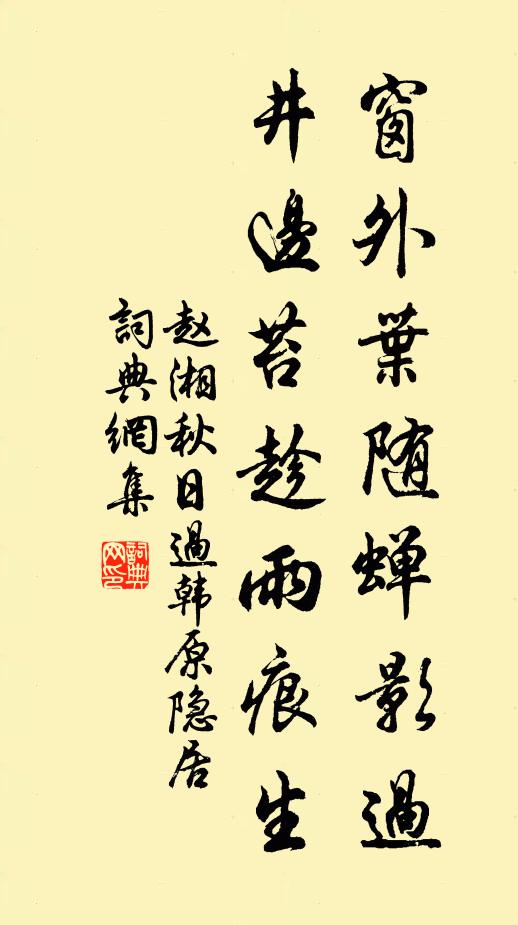 窗外葉随蝉影過
井邊苔趁雨痕生
赵湘秋日過韩原隐居
詞典網集
詞典网印